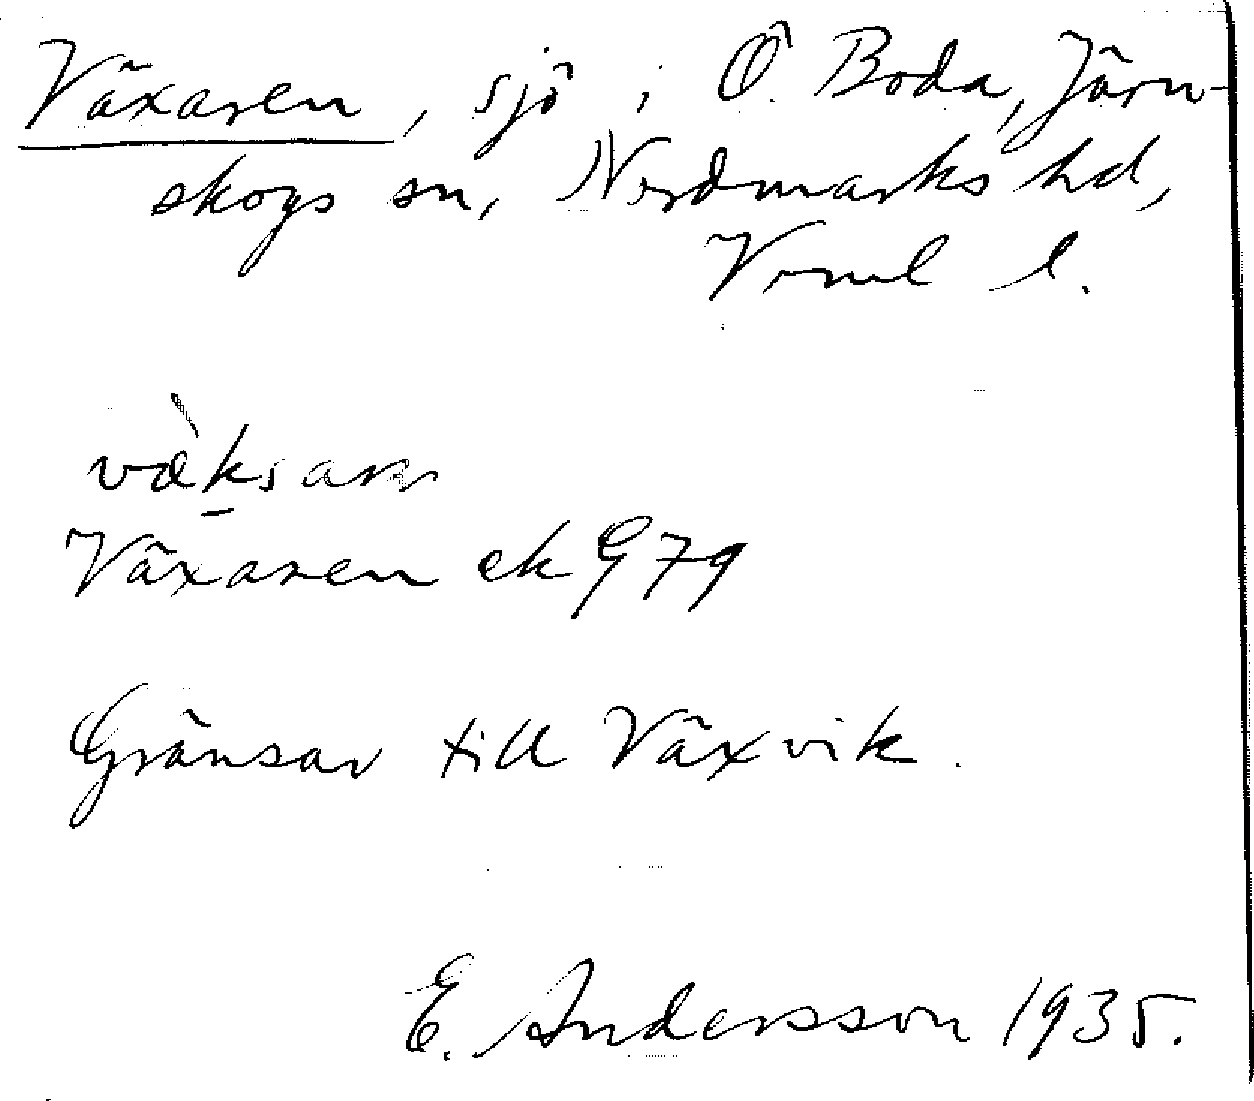 Växaren, sjö i Ö. Boda, Järn-
skogs sn, Nordmarks hd,
Vrml l.
Växaren ek 979
Gränsar till Växvik.
E. Andersson 1935.